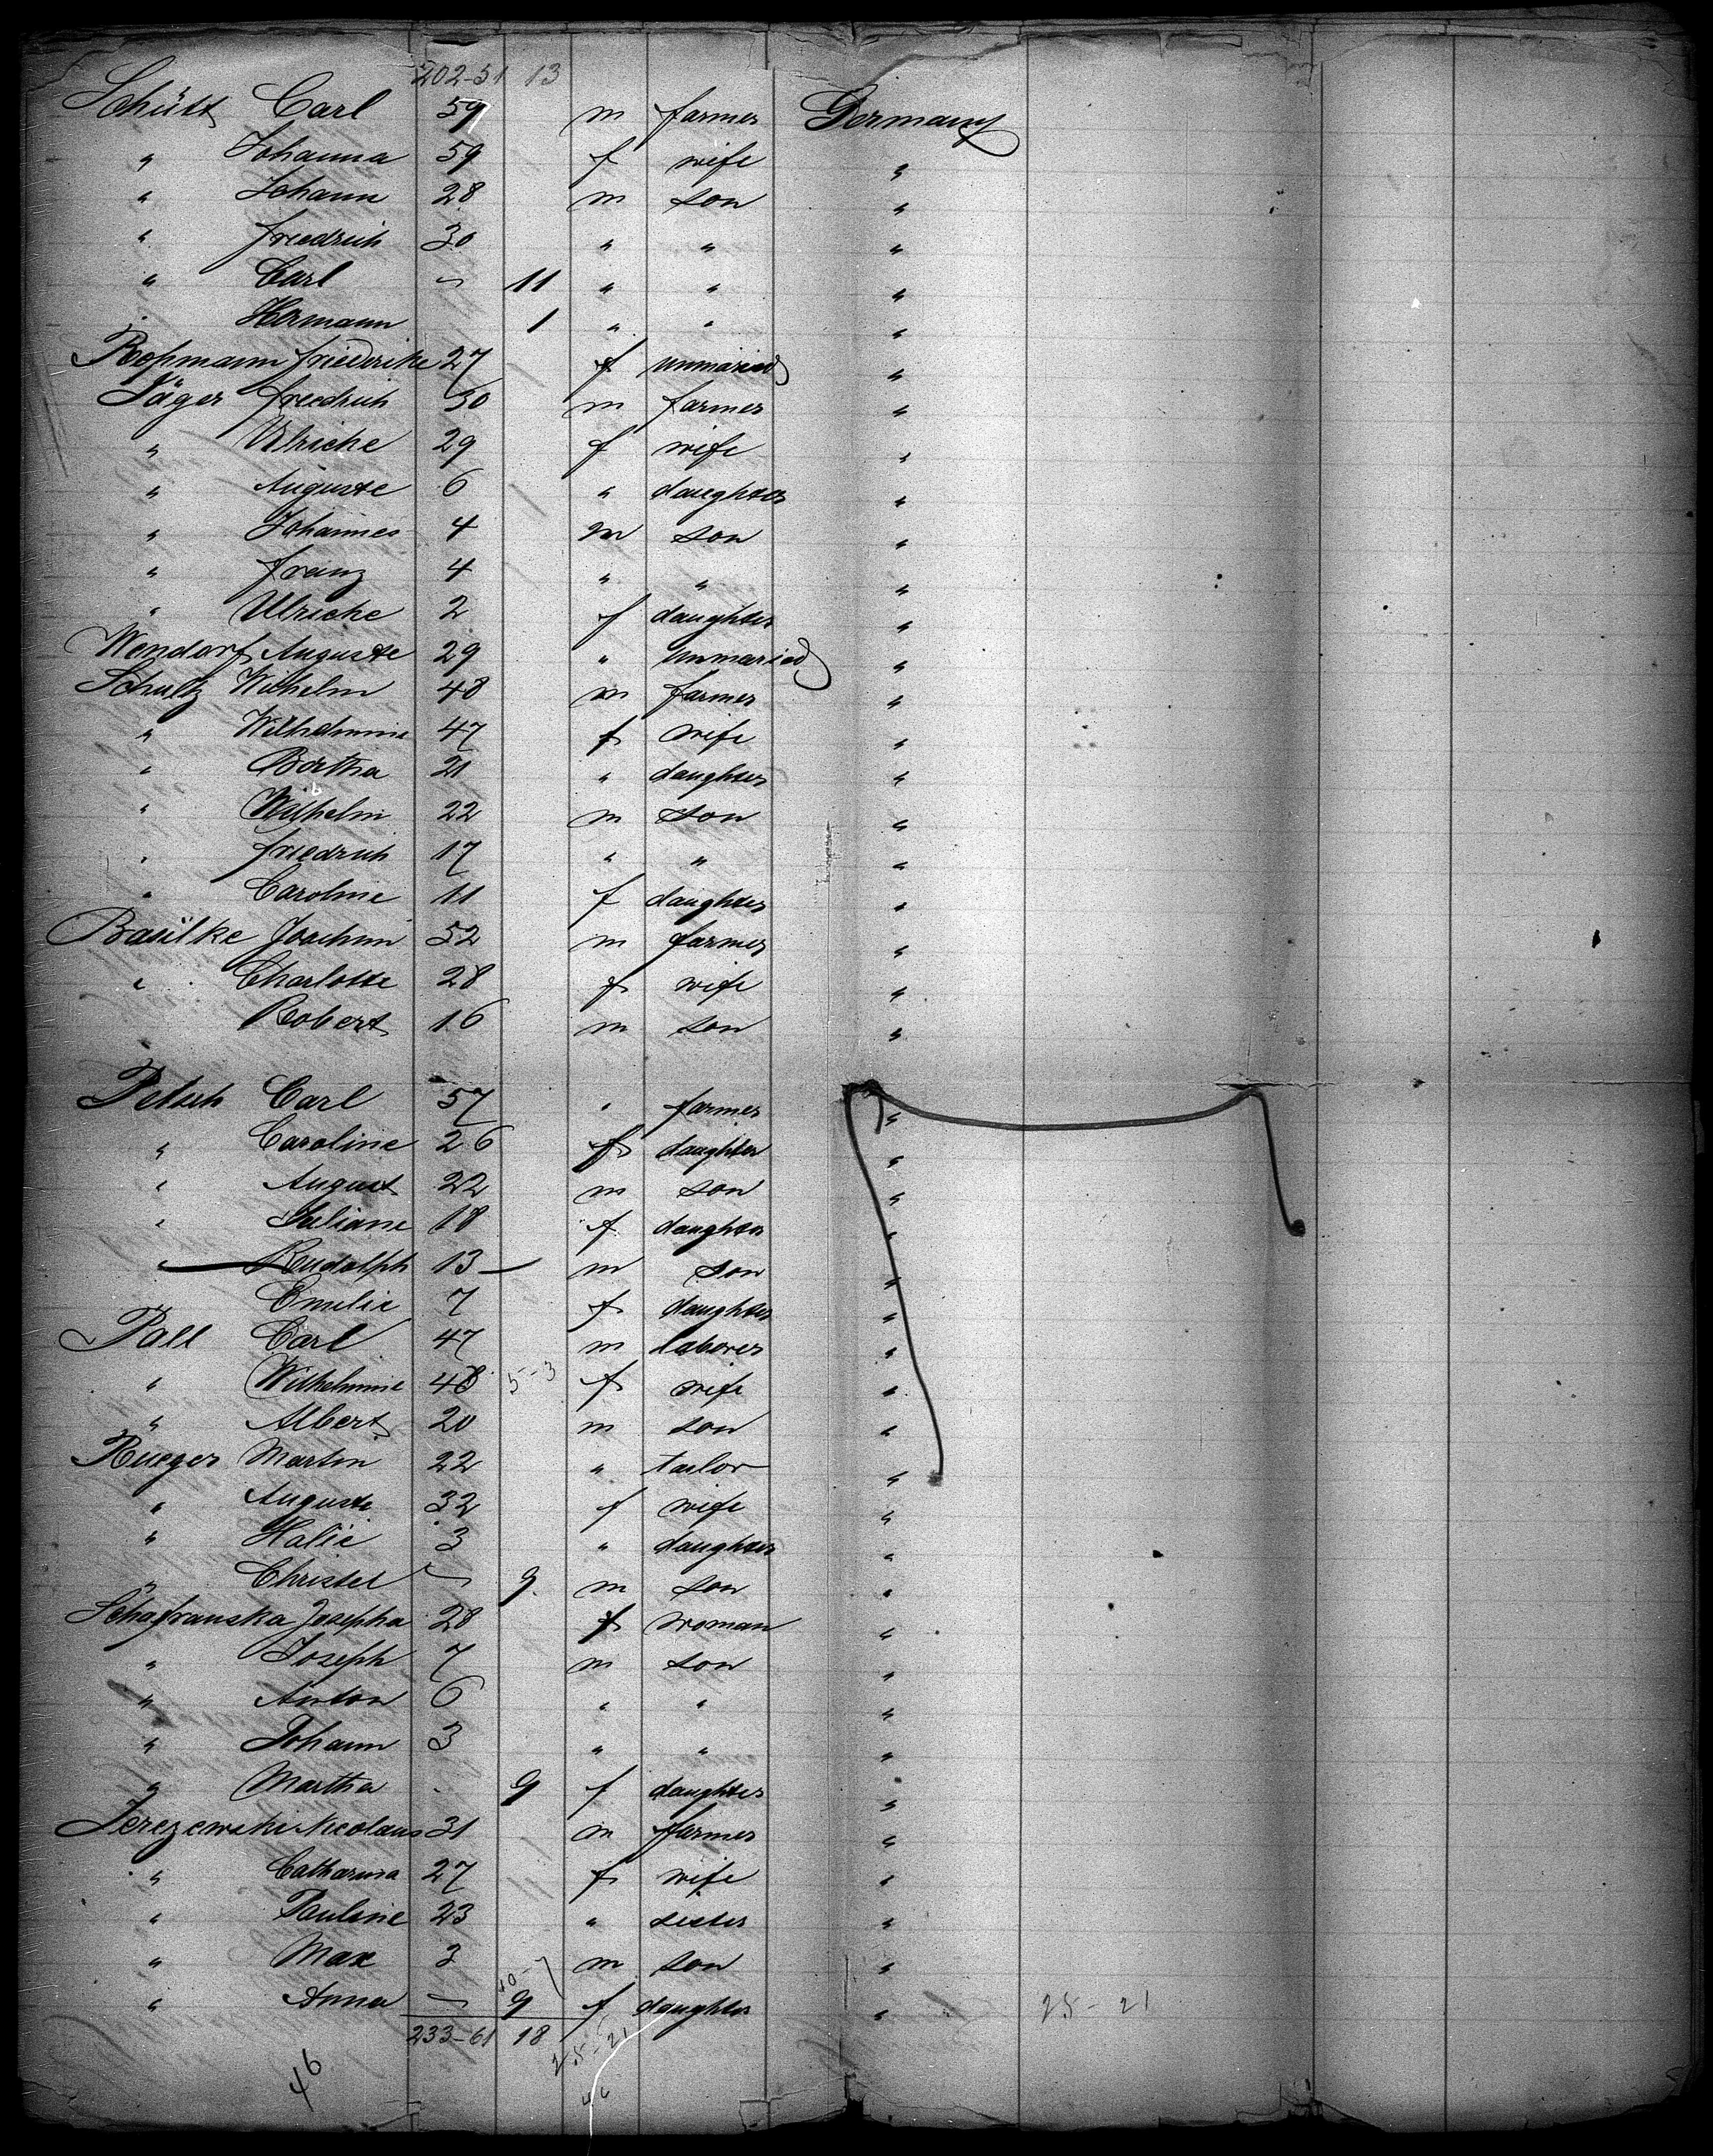 202-51 13
Schütt Carl 59 m farmer Germany
" Johanna 59 f wife "
" Johann 28 m son "
" Friedrich 30 " " "
" Carl - 11 " " "
" Hermann 1 " " "
Roßmann Friederike 27 f unmaried "
Jäger Friedrich 30 m farmer "
" Ulricke 29 f wife "
" Auguste 6 " daughter "
" Johannes 4 m son "
" Franz 4 " " "
" Ulricke 2 f daughter "
Wendorf Auguste 29 " unmaried "
Schultz Wilhelm 48 m farmer "
" Wilhelmine 47 f wife "
" Bertha 21 " daughter "
" Wilhelm 22 m son "
" Friedrich 17 " " "
" Caroline 11 f daughter "
Basilke Joachim 52 m farmer "
" Charlotte 28 f wife "
Robert 16 m son "
Petsch Carl 57 " farmer "
" Caroline 26 f daughter "
" August 22 m son "
" Juliane 18 f daughter "
" Rudolph 13 m son "
Emilie 7 f daughter "
Pall Carl 47 m laborer "
" Wilhelmine 48 5-3 f wife "
" Albert 20 m son "
Rueger Martin 22 " tailor "
" Auguste 32 f wife "
" Halie 3 " daughter "
" Christel - 9 m son "
Schafranska Josepha 28 f woman "
" Joseph 7 m son "
" Anton 6 " " "
" Johann 3 " " "
" Martha - 9 f daughter "
Jerezewski Nicolaus 31 m farmer "
" Catharina 27 f wife "
" Pauline 23 " sister "
" Max 3 m son "
" Anna - 9 f daughter " 25-21
233-61 18 25-21
46